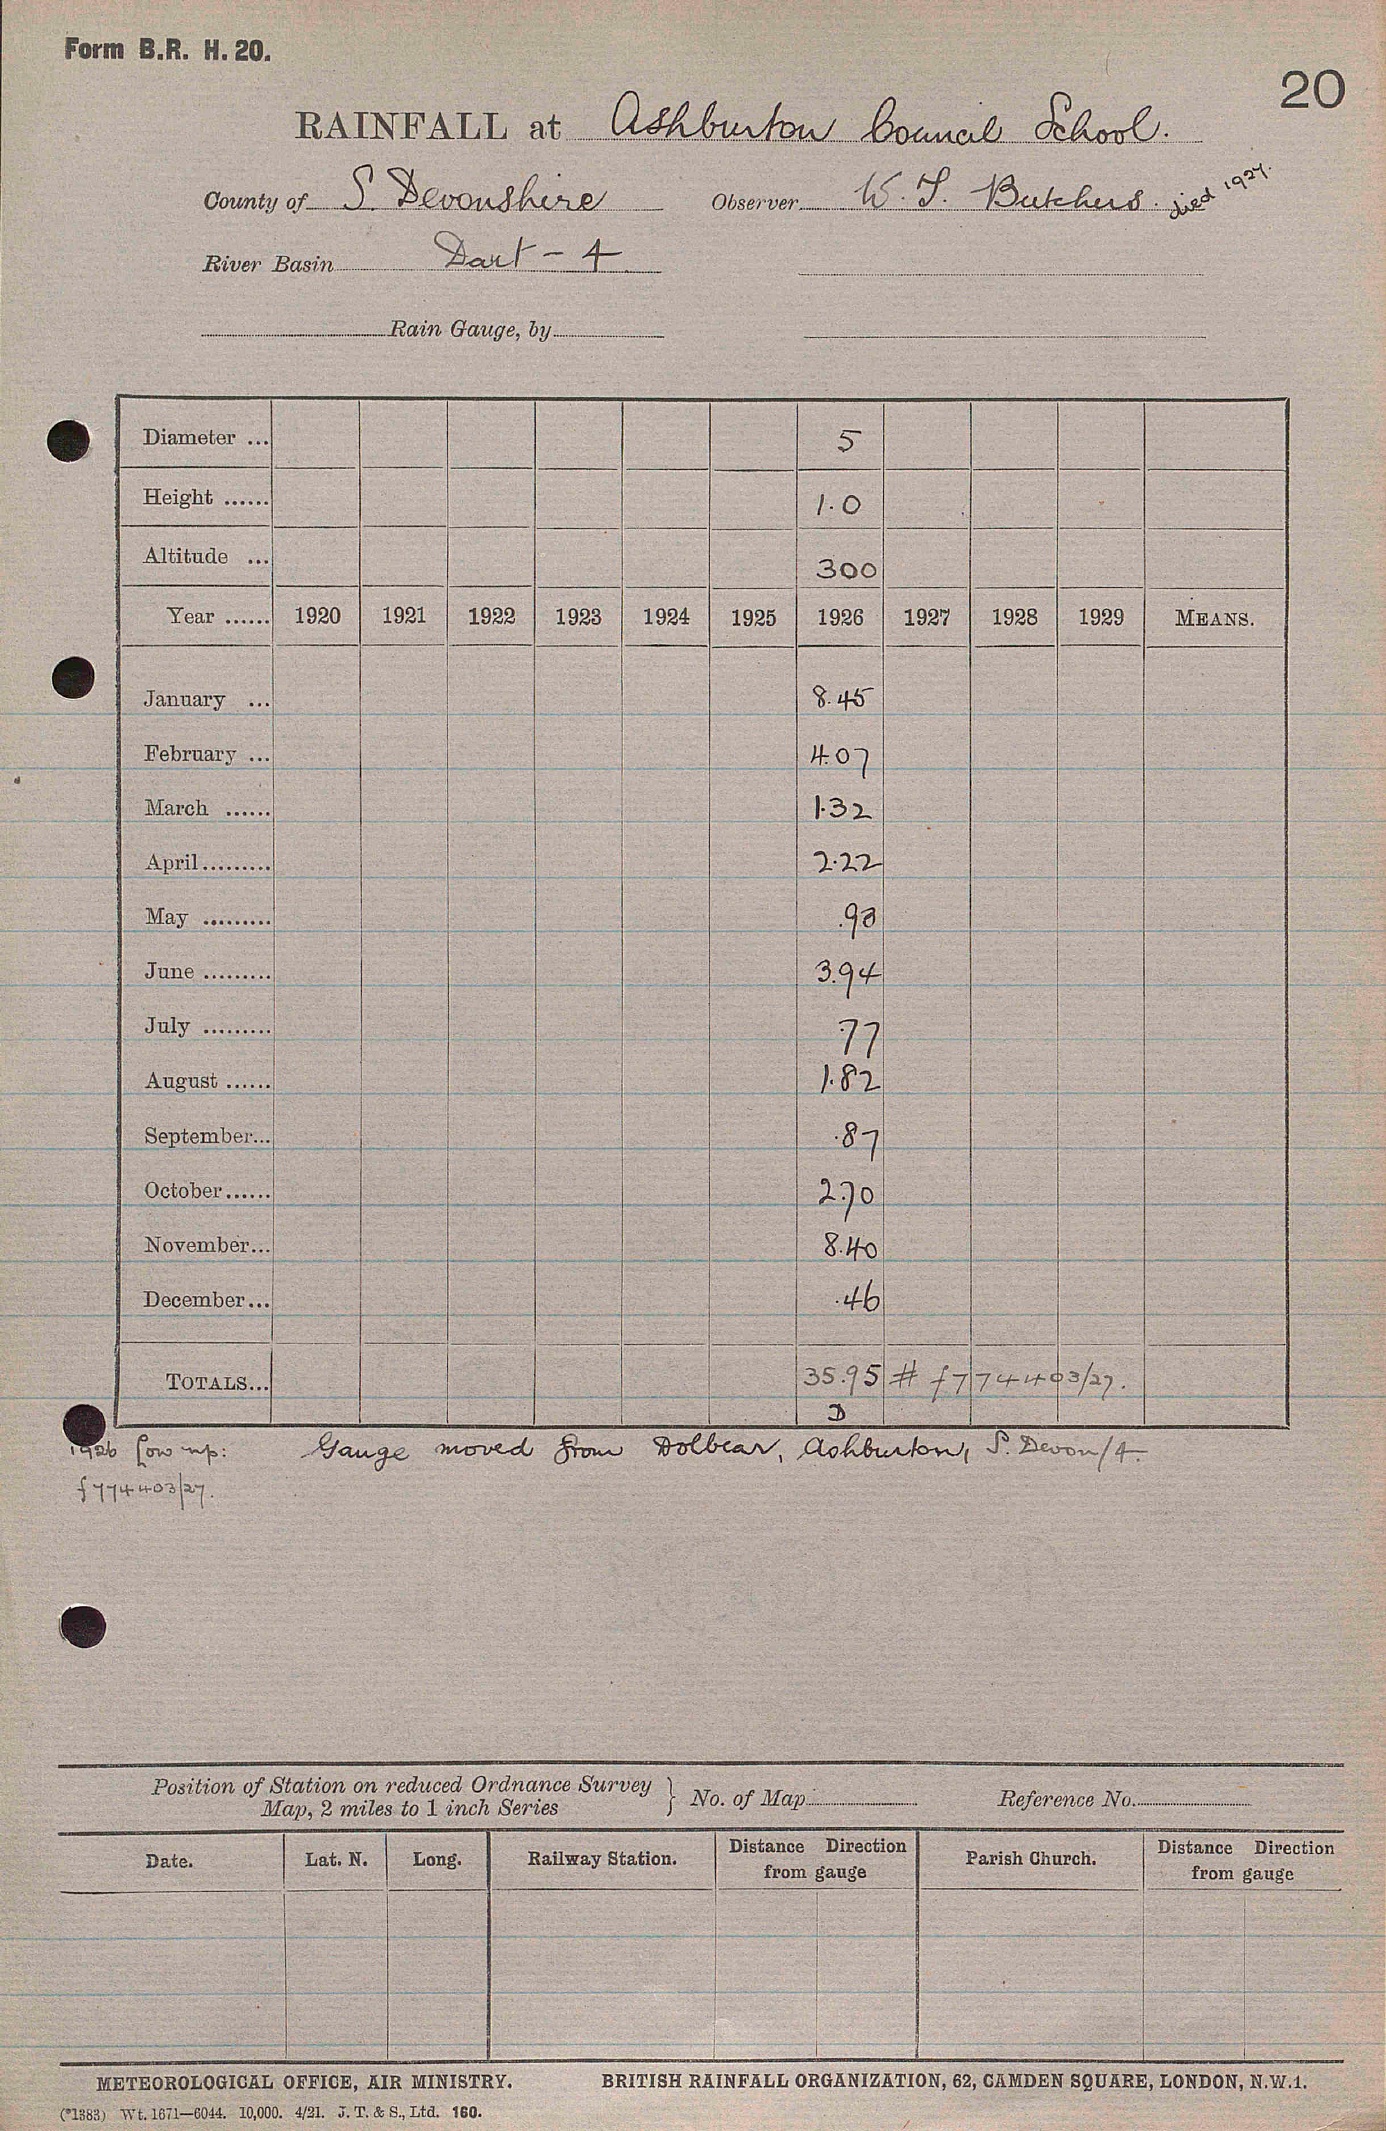 Form B.R. H. 20.
20
RAINFALL at Ashburton Council School.
County of S. Devonshire Observer W. J. Butchers. died 1927.
River Basin Dart - 4
Rain Gauge, by
Diameter ... 5
Height ...... 1.0
Altitude ... 300
Year ...... 1920 1921 1922 1923 1924 1925 1926 1927 1928 1929 MEANS.
January ... 8.45
February ... 4.07
March ...... 1.32
April ......... 2.22
May ......... .93
June ......... 3.94
July ......... .77
August ...... 1.82
September... .87
October...... 2.70
November... 8.40
December... .46
TOTALS... 35.95 # f774403/27.
D
1926 low up: Gauge moved from Dolbear, Ashburton, S. Devon/4.
f774403/27.
Position of Station on reduced Ordnance Survey } No. of Map Reference No.
Map, 2 miles to 1 inch Series
Date. Lat. N. Long. Railway Station. Distance Direction from gauge Parish Church. Distance Direction from gauge
METEOROLOGICAL OFFICE, AIR MINISTRY. BRITISH RAINFALL ORGANIZATION, 62, CAMDEN SQUARE, LONDON, N.W.1.
(*1383) Wt. 1671—6044. 10,000. 4/21. J. T. & S., Ltd. 160.